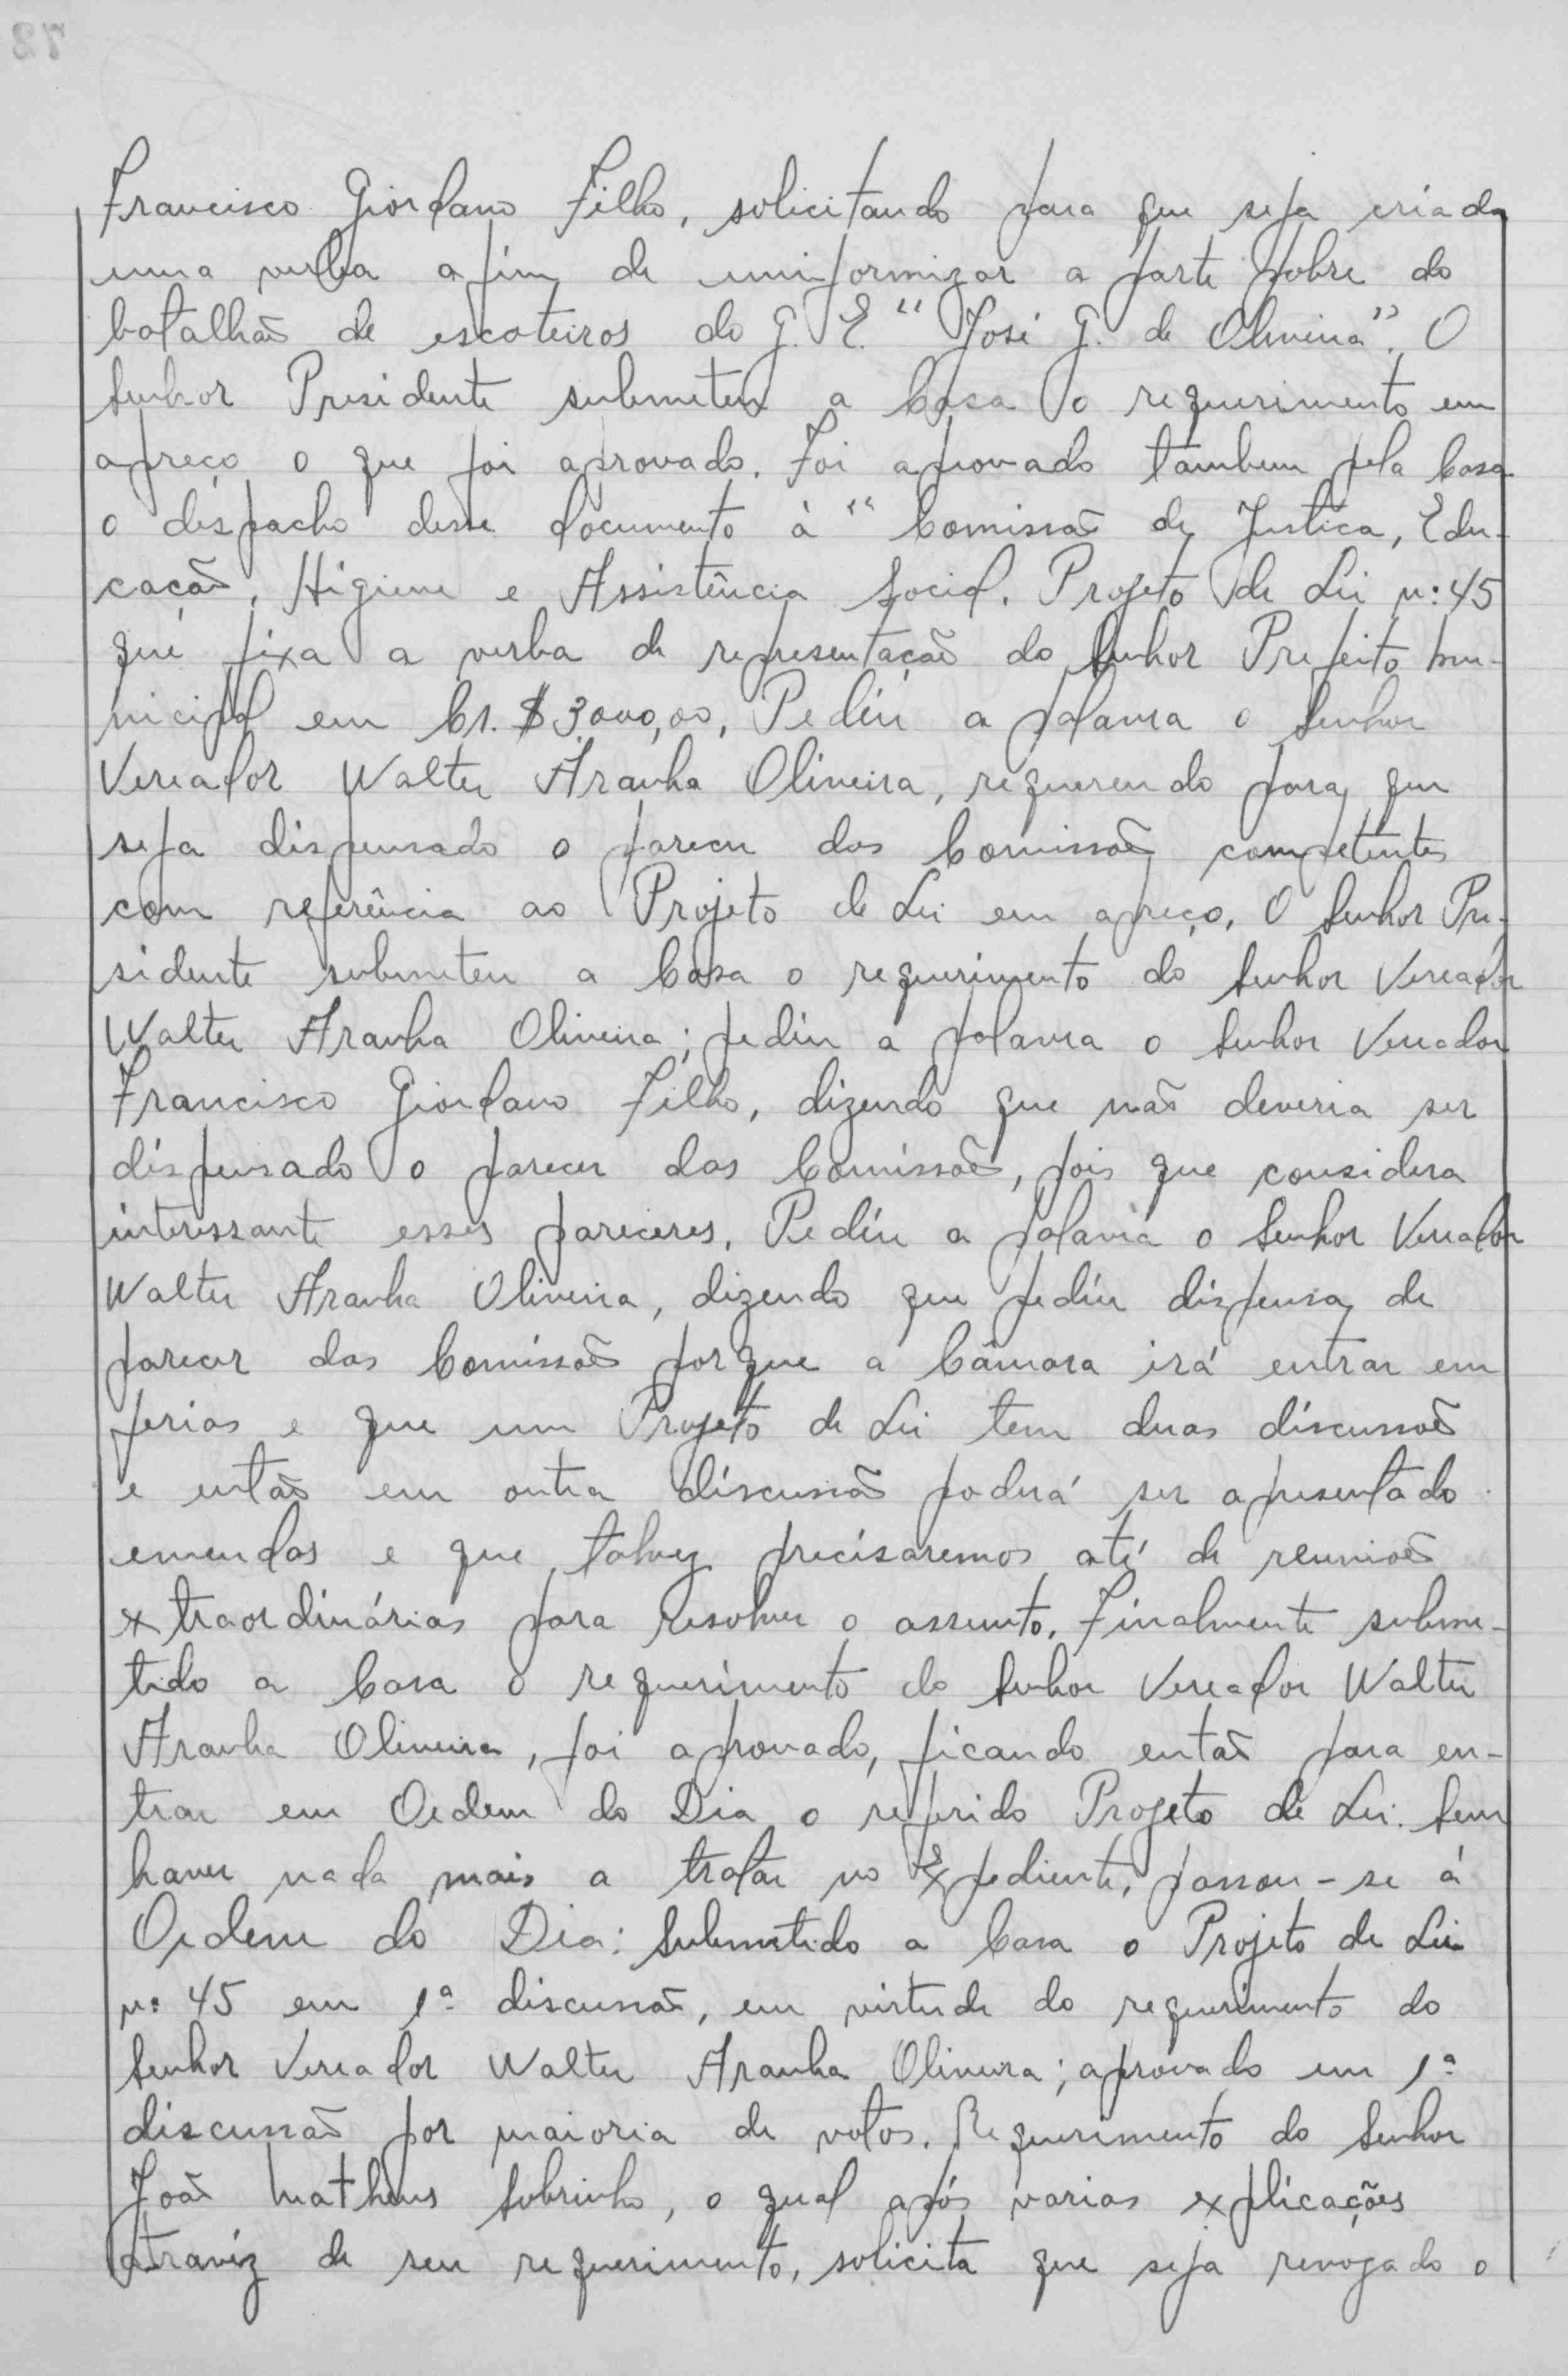 Francisco Giordano Filho, solicitando para que seja criada
uma verba afim de uniformizar a parte pobre do
batalhão de escoteiros do G. E. "José G. de Oliveira". O
Senhor Presidente submeteu a Casa o requerimento em
apreço o que foi aprovado. Foi aprovado tambem pela Casa
o despacho desse documento à "Comissão de Justica, Edu-
cação, Higiene e Assistência Social. Projeto de Lei nº 45
que fixa a verba de representação do Senhor Prefeito Mu-
nicipal em Cr. $ 3.000,00, Pediu a palavra o Senhor
Vereador Walter Aranha Oliveira, requerendo para que
seja dispensado o parecer das Comissões competentes
com referência ao Projeto de Lei em apreço. O Senhor Pre-
sidente submeteu a Casa o requerimento do Senhor Vereador
Walter Aranha Oliveira; pediu a palavra o Senhor Vereador
Francisco Giordano Filho, dizendo que não deveria ser
dispensado o parecer das Comissões, pois que considera
interessante esses pareceres. Pediu a palavra o Senhor Vereador
Walter Aranha Oliveira, dizendo que pediu dispensa de
parecer das Comissões porque a Câmara irá entrar em
ferias e que um Projeto de Lei tem duas discussões
e então em outra discussão poderá ser apresentado
emendas e que talvez precisaremos até de reuniões
extraordinárias para resolver o assunto. Finalmente subme-
tido a Casa o requerimento do Senhor Vereador Walter
Aranha Oliveira, foi aprovado, ficando então para en-
trar em Ordem do Dia o referido Projeto de Lei. Sem
haver nada mais a tratar no Expediente, passou-se á
Ordem do Dia: Submetido a Casa o Projeto de Lei
nº 45 em 1ª discussão, em virtude do requerimento do
Senhor Vereador Walter Aranha Oliveira; aprovado em 1ª
discussão por maioria de votos. Requerimento do Senhor
João Matheus Sobrinho, o qual após varias explicações
atraviz de seu requerimento, solicita que seja revogado o